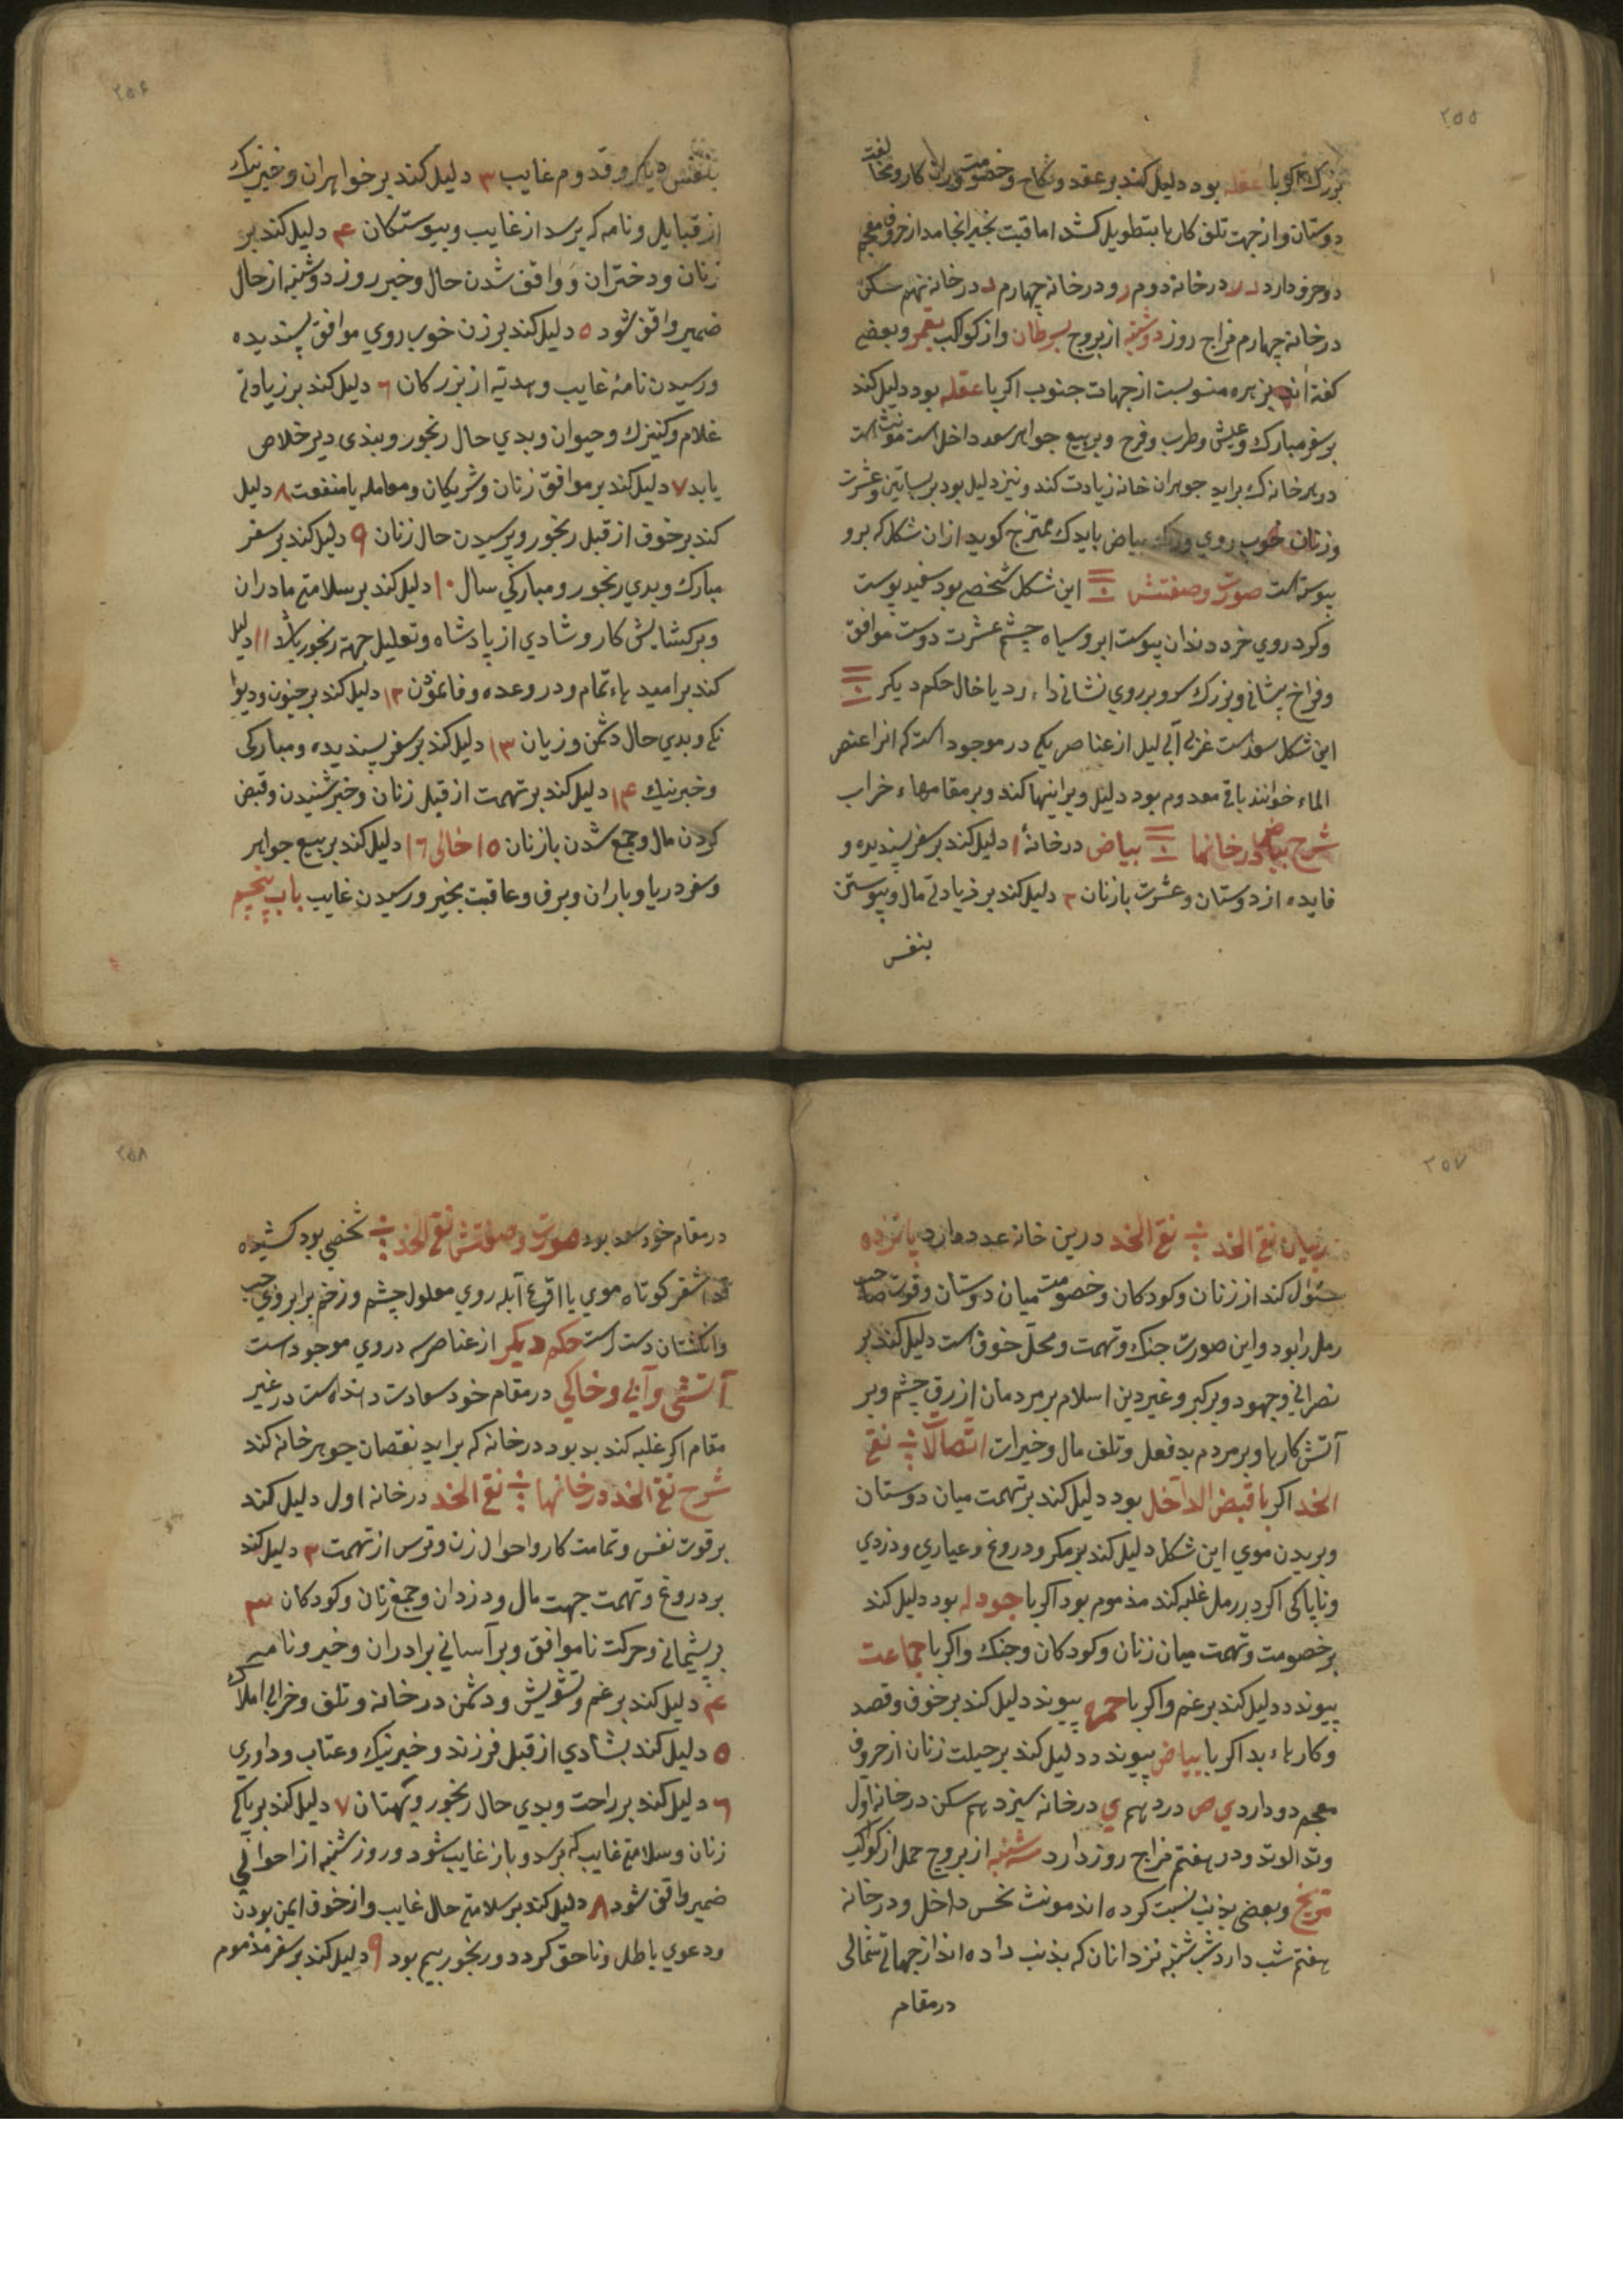 ۲۵۵
بزرگ اکر با عقله بود دلیل کند بر عقد و نکاح و خصومت و ران کار و مخالفت
دوستان و از جهت تلف کارها بتطویل کشد اما عاقبت بخیر انجامد از حروف معجم
دو حرف دارد د ر در خانه دوم ر و در خانه چهارم د در خانه نهم سکن
در خانه چهارم مزاج روز دوشنبه از بروج بسرطان و از کواکب بقمر و بعضی
کفته اند بزهره منسوبست از جهات جنوب اکر با عقله بود دلیل کند
بر سفر مبارک و عیش و طرب و فرح و بر بیع جواهر سعد داخل است مونث است
در هر خانه ک براید جوهر ان خانه زیادت کند و نیز دلیل بود بر بساتین و عشرت
و زنان خوب روی و رنک بیاض باید ک ممتزج کوید از ان شکل که برو
پیوسته است صورت و صفتش این شکل شخصی بود سفید پوست
و کرد روی خرد دندان پیوست ابرو سیاه چشم عشرت دوست موافق
و فراخ پیشانی و بزرک سر و بر روی نشانی دارد یا خال حکم دیکر
این شکل سعد است غربی آبی لیل از عناصر یکی در موجود است که انرا عنصر
الماء خوانند باقی معدوم بود دلیل ویرانیها کند و بر مقامهاء خراب
شرح بیاض در خانها بیاض در خانهٔ ۱ دلیل کند بر سفر پسندیده و
فایده از دوستان و عشرت با زنان ۲ دلیل کند بر زیادتی مال و پیوستن
بنفس
۲۵۶
بنفس دیاکر و قدوم غایب ۳ دلیل کند بر خواهران و خبر نیک
از قبایل و نامه که برسد از غایب و پیوستکان ۴ دلیل کند بر
زنان و دختران و واقف شدن حال و خبر روز دوشنبه از حال
ضمیر واقف شود ۵ دلیل کند بر زن خوب روی موافق پسندیده
و رسیدن نامهٔ غایب و هدیه از بزرکان ۶ دلیل کند بر زیادتی
غلام و کنیزک و حیوان و بدی حال رنجور و بندی دیر خلاص
یابد ۷ دلیل کند بر موافق زنان و شریکان و معامله با منفعت ۸ دلیل
کند بر خوف از قبل رنجور و پرسیدن حال زنان ۹ دلیل کند بر سفر
مبارک و بدی رنجور و مبارکی سال ۱۰ دلیل کند بر سلامتی مادران
و بر کشایش کار و شادی از پادشاه و تعلیل جهة رنجور باشد ۱۱ دلیل
کند بر امیدهاء تمام و در وعده وفا نمودن ۱۲ دلیل کند بر جنون و دیوا
نکی و بدی حال دشمن و زیان ۱۳ دلیل کند بر سفر پسندیده و مبارکی
و خبر نیک ۱۴ دلیل کند بر تهمت از قبل زنان و خبر شنیدن و قبض
کردن مال و جمع شدن با زنان ۱۵ خالی ۱۶ دلیل کند بر بیع جواهر
و سفر دریا و باران و برف و عاقبت بخیر و رسیدن غایب باب پنجم
۲۵۷
در بیان نقی الخد نقی الخد درین خانه عدد دارد پانزده
سئوال کند از زنان و کودکان و خصومت میان دوستان و قوت صاحب
رمل را بود و این صورت جنک و تهمت و محل خوف است دلیل کند بر
نصرانی و جهود و بر کبر و غیر دین اسلام بر مردمان ازرق چشم و بر
آتش کارها و بر مردم بد فعل و تلف مال و خیرات اتصالات نقی
الخد اکر با قبض الداخل بود دلیل کند بر تهمت میان دوستان
و بریدن موی این شکل دلیل کند بر مکر و دروغ و عیاری و دزدی
و ناپاکی اکر در رمل غلبه کند مذموم بود اکر با جودله بود دلیل کند
بر خصومت و تهمت میان زنان و کودکان و جنک و اکر با جماعت
پیوندد دلیل کند بر غم و اکر با حمره پیوند دلیل کند بر خوف و قصد
و کارهاء بد اکر با بیاض پیوندد دلیل کند بر حیلت زنان از حروف
معجم دو دارد ی ص در دهم ی در خانه سیزدهم سکن در خانه اول
وتد الوتد و در هفتم مزاج روز دارد سه شنبه از بروج حمل از کواکب
مریخ و بعضی بذنب نسبت کرده اند مونث نحس داخل و در خانه
هفتم شب دارد شب شنبه نزد انان که بذنب داده اند از جهات شمالی
در مقام
۲۵۸
در مقام خود سعد بود صورت و صفتش نقی الخد شخصی بود کشیده
قد اشقر کوتاه موی یا اقرع آبله روی معلول چشم و زخم بر ابروی چپ
و انکشتان دست راست حکم دیکر از عناصر سه در وی موجود است
آتشی و آبی و خاکی در مقام خود سعادت داند است در غیر
مقام اکر غلبه کند بد بود در خانه که براید نقصان جوهر خانه کند
شرح نقی الخد در خانها نقی الخد در خانه اول دلیل کند
بر قوت نفس و تمامت کار و احوال زن و ترس از تهمت ۲ دلیل کند
بر دروغ و تهمت جهت مال و دزدان و جمع زنان و کودکان ۳
بر پشیمانی و حرکت ناموافق و بر آسانی برادران و خبر و نامه
۴ دلیل کند بر غم و تشویش و دشمن در خانه و تلف و خرابی املاک
۵ دلیل کند بشادی از قبل فرزند و خبر نیک و عتاب و داوری
۶ دلیل کند بر راحت و بدی حال رنجور و بهتان ۷ دلیل کند بر پاکی
زنان و سلامتی غایب که برسد و باز غایب شود و روز شنبه از احوالی
ضمیر واقف شود ۸ دلیل کند بر سلامتی حال غایب و از خوف ایمن بودن
و دعوی باطل و ناحق کردد و رنجور بیم بود ۹ دلیل کند بر سفر مذموم